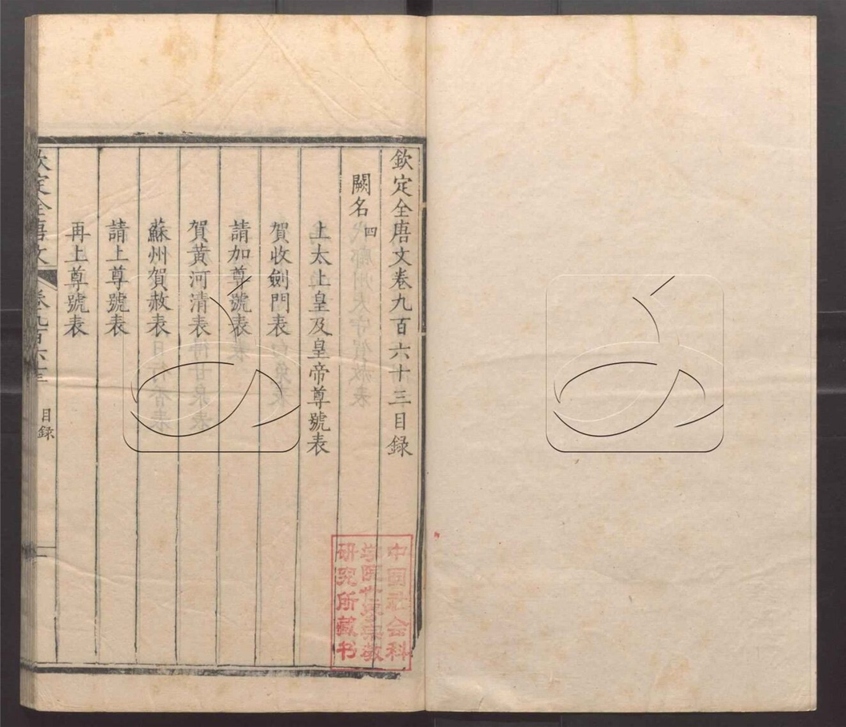 欽定全唐文卷九百六十三目録
闕名四
上太上皇及皇帝尊號表
賀收劍門表
請加尊號表
賀黄河清表
蘇州賀赦表
請上尊號表
再上尊號表
欽定全唐文 卷九百六十三 目録 一
中国社会科
学院世界宗教
研究所藏书